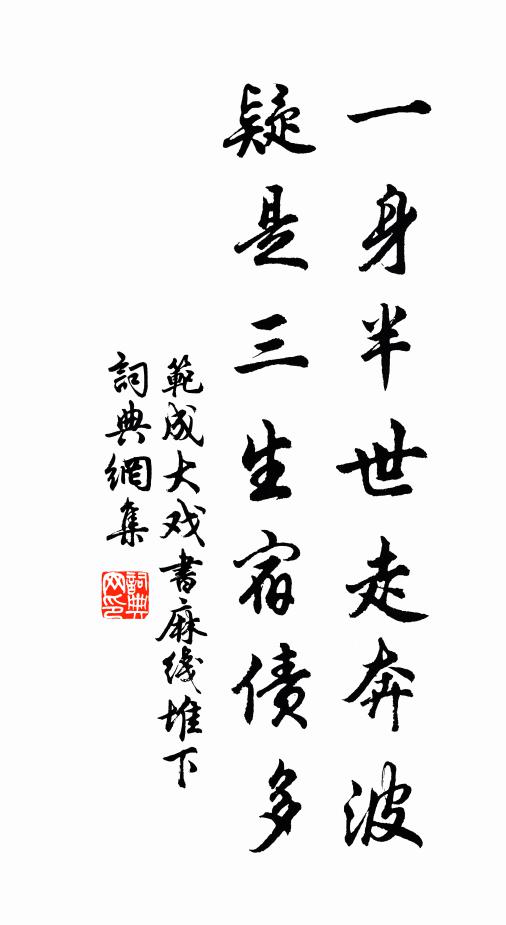 一身半世走奔波
疑是三生宿債多
範成大戏書麻线堆下
詞典網集
詞典网印